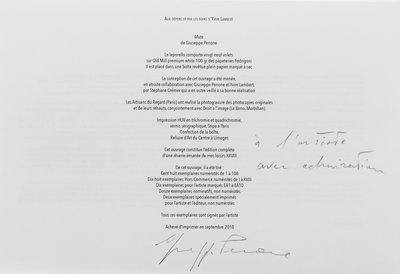 AUX DÉPENS ET PAR LES SOINS D'YVON LAMBERT
Mute
de Giuseppe Penone
Le leporello comporte vingt-neuf volets
sur Old Mill premium white 100 gr des papeteries Fedrigoni
Il est placé dans une boîte revêtue plein papier marqué à sec
La conception de cet ouvrage a été menée,
en étroite collaboration avec Giuseppe Penone et Yvon Lambert,
par Stéphane Crémer qui a en outre veillé à sa bonne réalisation
Les Artisans du Regard (Paris) ont réalisé la photogravure des photocopies originales
et de leurs rehauts, conjointement avec Droit à l'image (Le Bono, Morbihan)
Impression HUV en trichromie et quadrichromie,
vernis sérigraphique, Stipa à Paris
Confection de la boîte,
Reliure d'Art du Centre à Limoges
Cet ouvrage constitue l'édition complète
d'une rêverie émanée de mes loisirs XXVIII
De cet ouvrage, il a été tiré :
Cent huit exemplaires numérotés de 1 à 108
Dix-huit exemplaires Hors Commerce numérotés de I à XVIII
Dix exemplaires pour l'artiste marqués EA1 à EA10
Douze exemplaires nominatifs, non numérotés
Deux exemplaires spécialement imprimés
pour l'artiste et l'éditeur, non numérotés
Tous ces exemplaires sont signés par l'artiste
Achevé d'imprimer en septembre 2018
à l'artiste
avec admiration
Giuseppe Penone